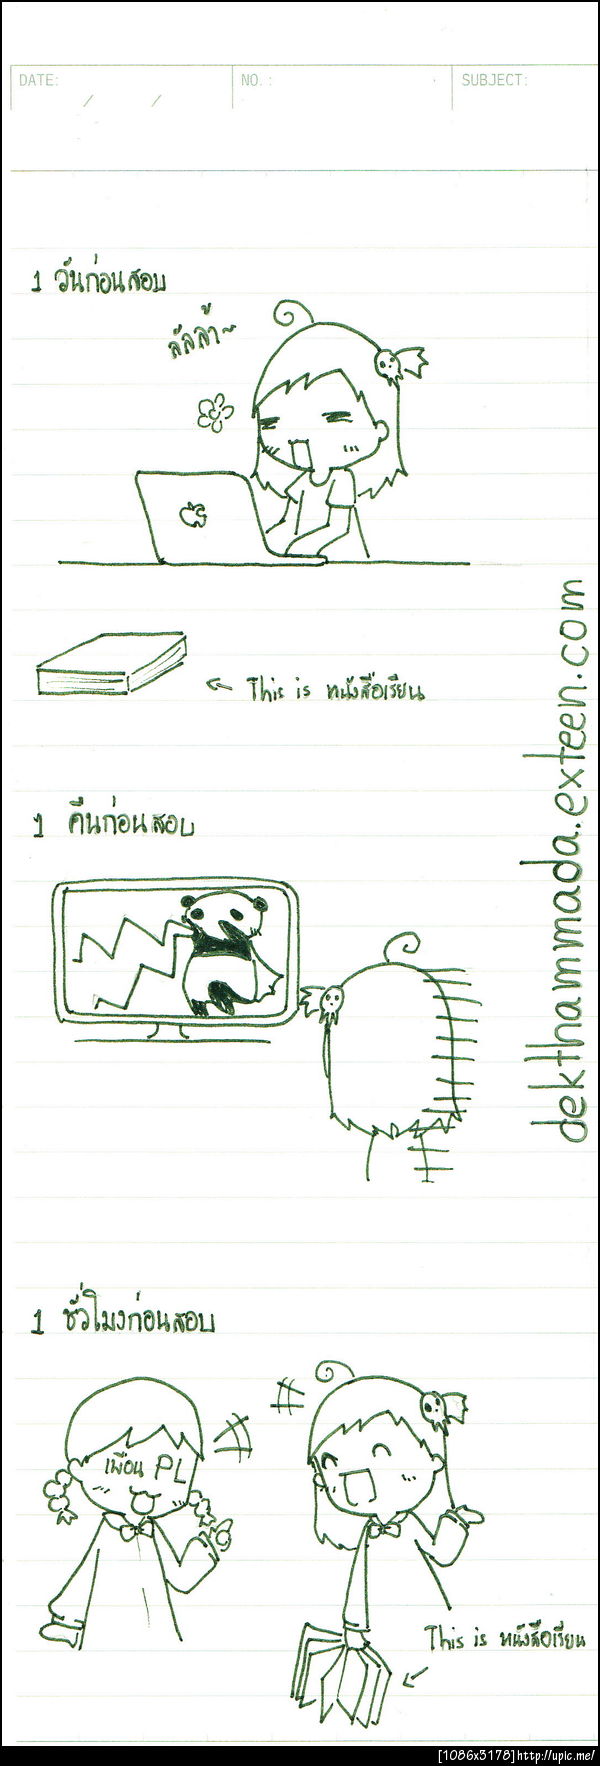 DATE: / / NO.: SUBJECT:
1 วันก่อนสอบ
ลัลล้า~
This is หนังสือเรียน
1 คืนก่อนสอบ
dekthammada.exteen.com
1 ชั่วโมงก่อนสอบ
เพื่อน PL
This is หนังสือเรียน
[1086x3178]http://upic.me/